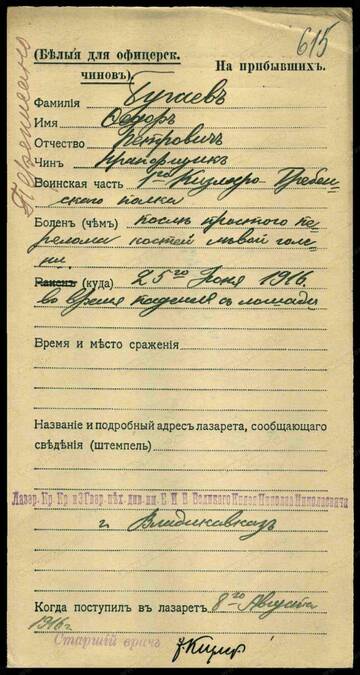 615
(Бѣлыя для офицерск.
чиновъ).
На прибывшихъ.
Переписано
Фамилія Бугаевъ
Имя Ѳедоръ
Отчество Петровичъ
Чинъ Прапорщикъ
Воинская часть 1го Кизляро-Гребен-
скаго полка
Боленъ (чѣмъ) послѣ простого пе-
релома костей лѣвой голе-
ни
Раненъ (куда) 25го Іюня 1916.
во время паденія съ лошади
Время и мѣсто сраженія
Названіе и подробный адресъ лазарета, сообщающаго
свѣдѣнія (штемпель)
Лазар. Кр. Кр. и 3 Гвар. пѣх. див. им. Е И В Великаго Князя Николая Николаевича
г. Владикавказъ
Когда поступилъ въ лазаретъ 8го Августа
1916г.
Старшій врачъ